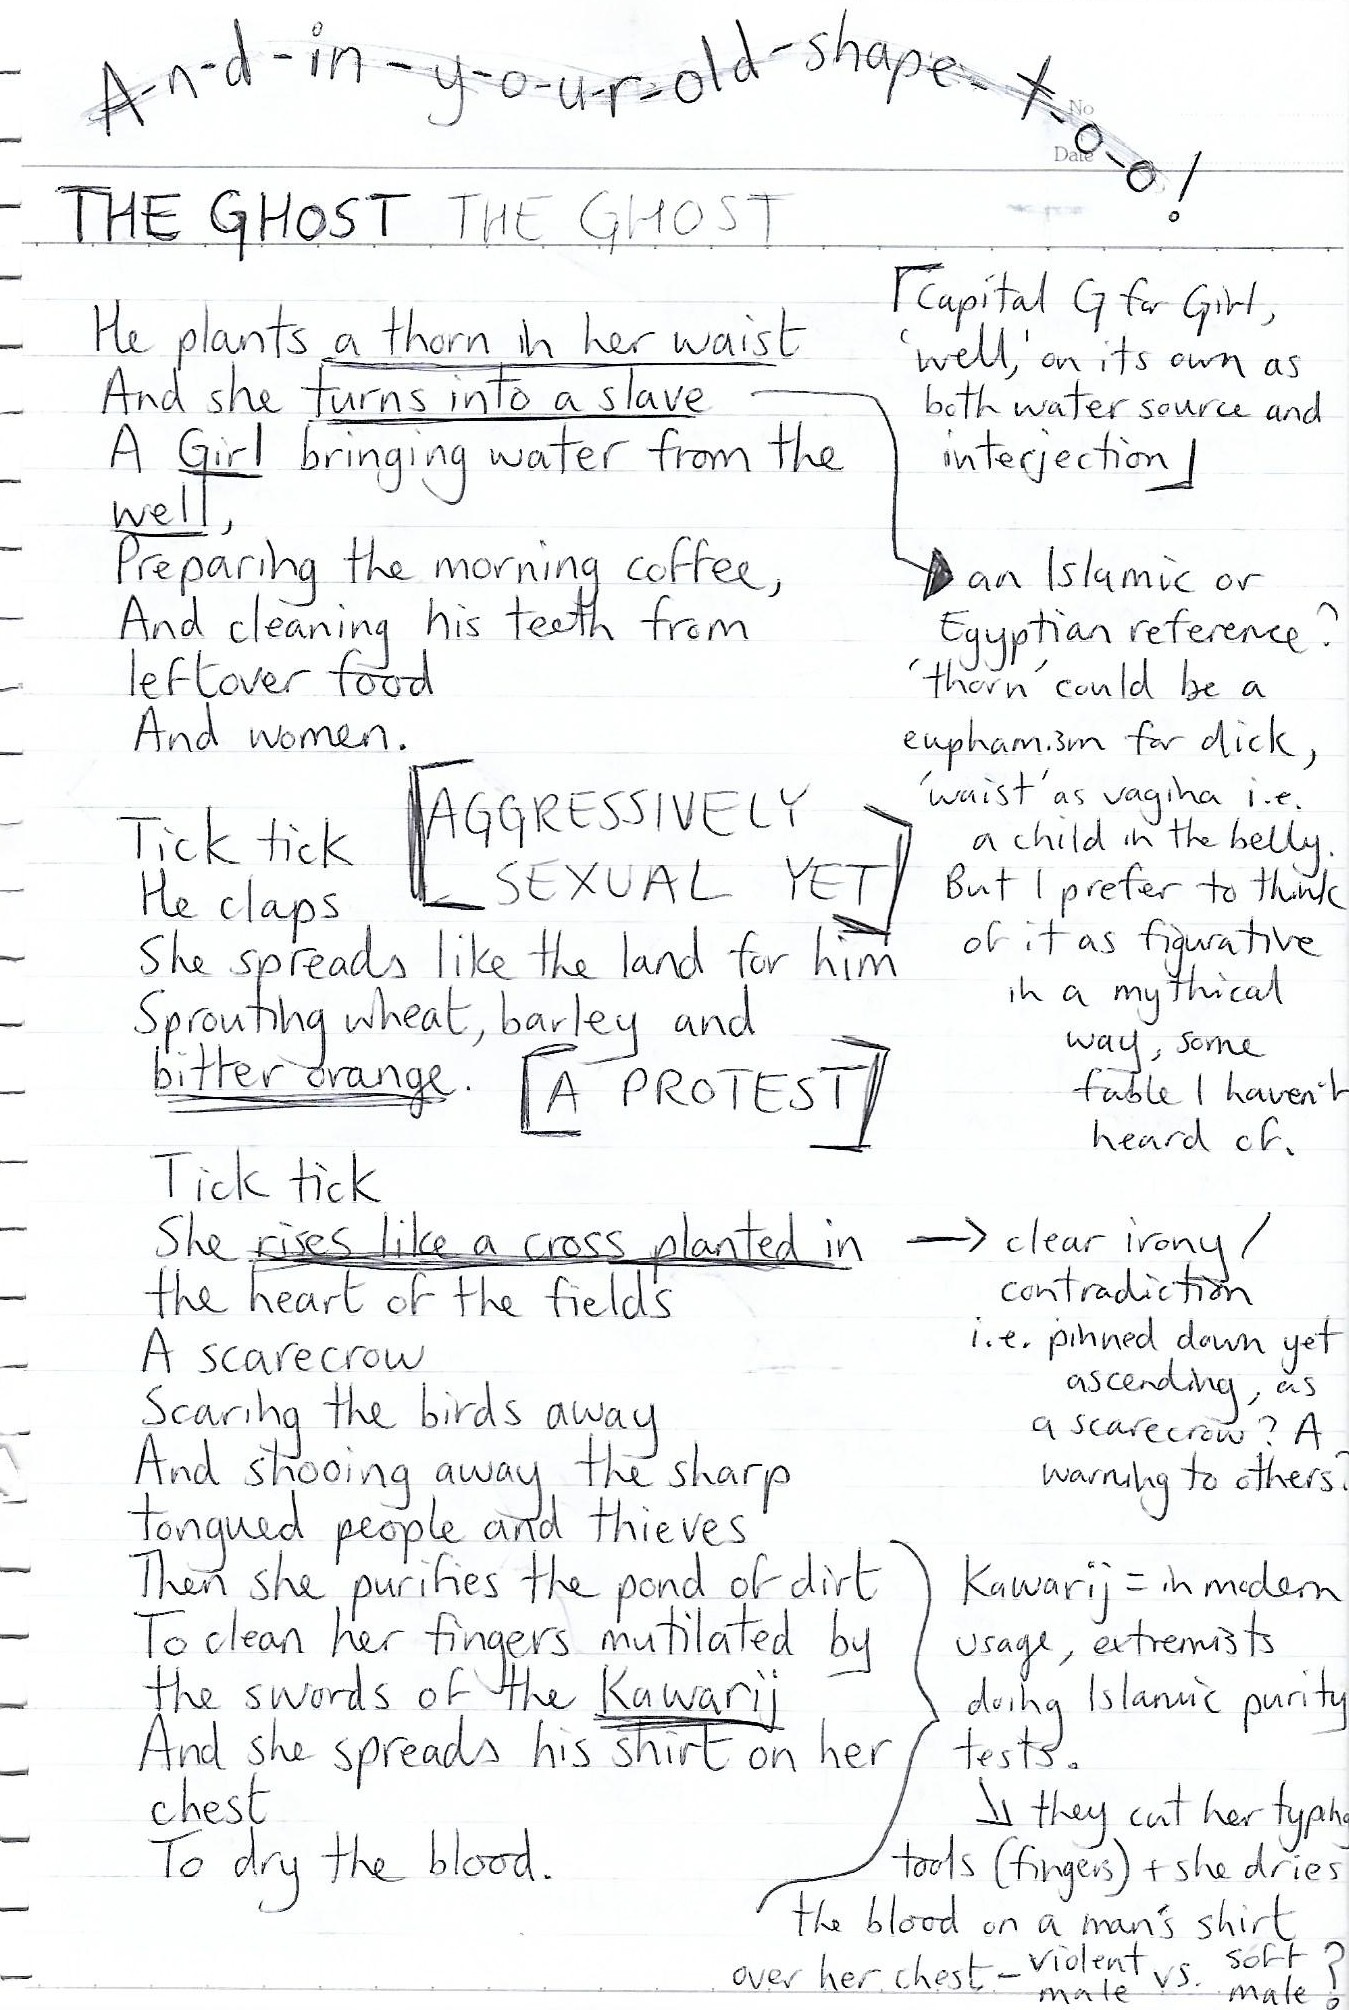 A-n-d-in-y-o-u-r-old-shape-t-o-o!
No
Date
THE GHOST THE GHOST
He plants a thorn in her waist
And she turns into a slave
A Girl bringing water from the
well,
Preparing the morning coffee,
And cleaning his teeth from
leftover food
And women.
Tick tick
He claps
She spreads like the land for him
Sprouting wheat, barley and
bitter orange.
[AGGRESSIVELY
SEXUAL YET]
[A PROTEST]
Tick tick
She rises like a cross planted in
the heart of the fields
A scarecrow
Scaring the birds away
And shooing away the sharp
tongued people and thieves
Then she purifies the pond of dirt
To clean her fingers mutilated by
the swords of the Kawarij
And she spreads his shirt on her
chest
To dry the blood.
[Capital G for Girl,
'well,' on its own as
both water source and
interjection]
an Islamic or
Egyptian reference?
'thorn' could be a
euphamism for dick,
'waist' as vagina i.e.
a child in the belly.
But I prefer to think
of it as figurative
in a mythical
way, some
fable I haven't
heard of.
→ clear irony /
contradiction
i.e. pinned down yet
ascending, as
a scarecrow? A
warning to others?
Kawarij = in modern
usage, extremists
doing Islamic purity
tests.
↘ they cut her typing
tools (fingers) + she dries
the blood on a man's shirt
over her chest - violent male vs. soft male?